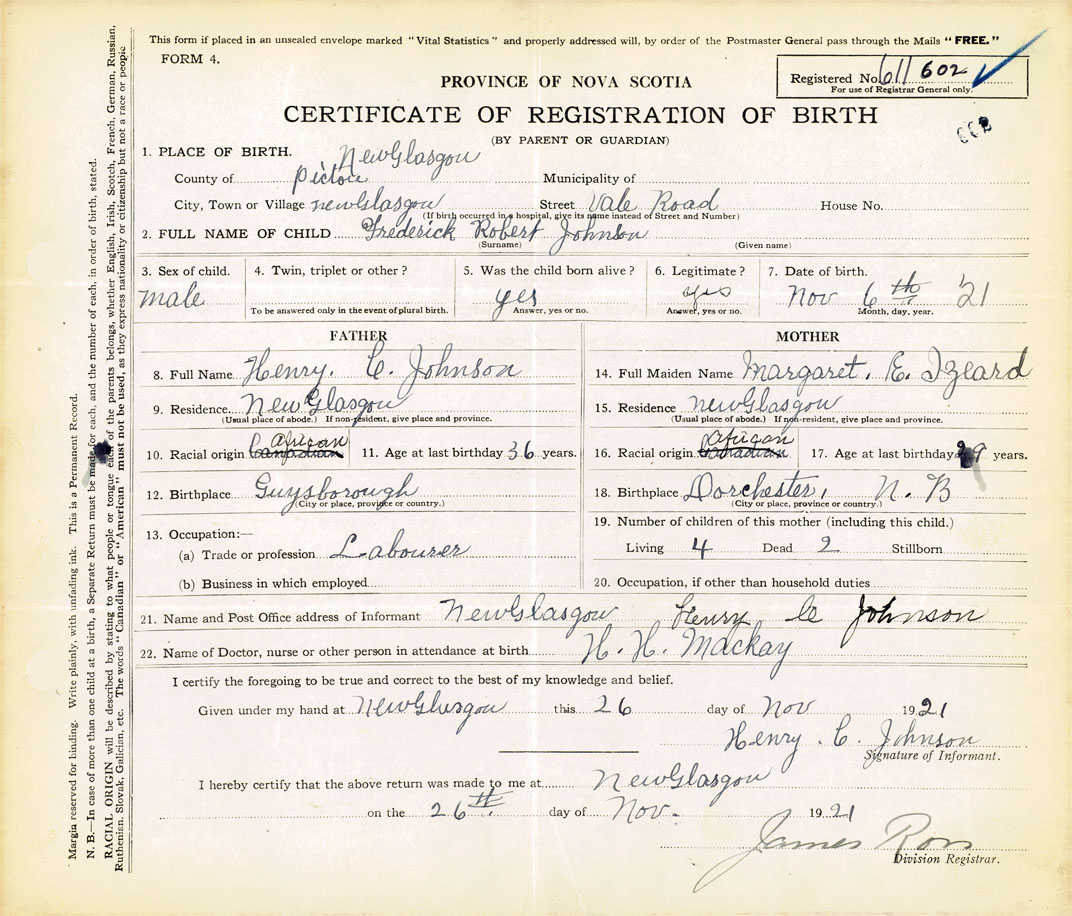 This form if placed in an unsealed envelope marked "Vital Statistics" and properly addressed will, by order of the Postmaster General pass through the Mails "FREE."
FORM 4.
PROVINCE OF NOVA SCOTIA
Registered No. 611 602
For use of Registrar General only.
CERTIFICATE OF REGISTRATION OF BIRTH
(BY PARENT OR GUARDIAN)
1. PLACE OF BIRTH. NewGlasgow
County of Pictou Municipality of
City, Town or Village newGlasgow Street Vale Road House No.
(If birth occurred in a hospital, give its name instead of Street and Number)
2. FULL NAME OF CHILD Frederick Robert Johnson
(Surname) (Given name)
3. Sex of child. 4. Twin, triplet or other? 5. Was the child born alive? 6. Legitimate? 7. Date of birth.
male yes yes Nov 6th 21
To be answered only in the event of plural birth. Answer, yes or no. Answer, yes or no. Month, day, year.
FATHER MOTHER
8. Full Name Henry. C. Johnson 14. Full Maiden Name Margaret. E. Izeard
9. Residence NewGlasgow 15. Residence newGlasgow
(Usual place of abode.) If non-resident, give place and province. (Usual place of abode.) If non-resident, give place and province.
African African
10. Racial origin Canadian 11. Age at last birthday 36 years. 16. Racial origin Canadian 17. Age at last birthday years.
12. Birthplace Guysborough 18. Birthplace Dorchester, N. B
(City or place, province or country.) (City or place, province or country.)
13. Occupation:— 19. Number of children of this mother (including this child.)
(a) Trade or profession Labourer Living 4 Dead 2 Stillborn
(b) Business in which employed 20. Occupation, if other than household duties
21. Name and Post Office address of Informant NewGlasgow Henry C Johnson
22. Name of Doctor, nurse or other person in attendance at birth H. H. Mackay
I certify the foregoing to be true and correct to the best of my knowledge and belief.
Given under my hand at NewGlasgow this 26 day of Nov 1921
Henry. C. Johnson
Signature of Informant.
I hereby certify that the above return was made to me at NewGlasgow
on the 26th. day of Nov. 1921
James Ross
Division Registrar.
Margin reserved for binding. Write plainly, with unfading ink. This is a Permanent Record.
N. B.—In case of more than one child at a birth, a Separate Return must be made for each, and the number of each, in order of birth, stated.
RACIAL ORIGIN will be described by stating to what people or tongue each of the parents belongs, whether English, Irish, Scotch, French, German, Russian,
Ruthenian, Slovak, Galician, etc. The words "Canadian" or "American" must not be used, as they express nationality or citizenship but not a race or people